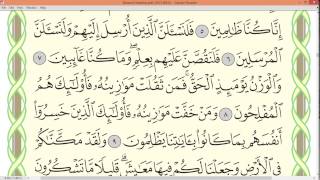 إِنَّا كُنَّا ظَٰلِمِينَ ٥ فَلَنَسْـَٔلَنَّ ٱلَّذِينَ أُرْسِلَ إِلَيْهِمْ وَلَنَسْـَٔلَنَّ
ٱلْمُرْسَلِينَ ٦ فَلَنَقُصَّنَّ عَلَيْهِم بِعِلْمٍ وَمَا كُنَّا غَآئِبِينَ ٧
وَٱلْوَزْنُ يَوْمَئِذٍ ٱلْحَقُّ فَمَن ثَقُلَتْ مَوَٰزِينُهُۥ فَأُو۟لَٰٓئِكَ هُمُ
ٱلْمُفْلِحُونَ ٨ وَمَنْ خَفَّتْ مَوَٰزِينُهُۥ فَأُو۟لَٰٓئِكَ ٱلَّذِينَ خَسِرُوٓا۟
أَنفُسَهُم بِمَا كَانُوا۟ بِـَٔايَٰتِنَا يَظْلِمُونَ ٩ وَلَقَدْ مَكَّنَّٰكُمْ
فِى ٱلْأَرْضِ وَجَعَلْنَا لَكُمْ فِيهَا مَعَٰيِشَ قَلِيلًا مَّا تَشْكُرُونَ